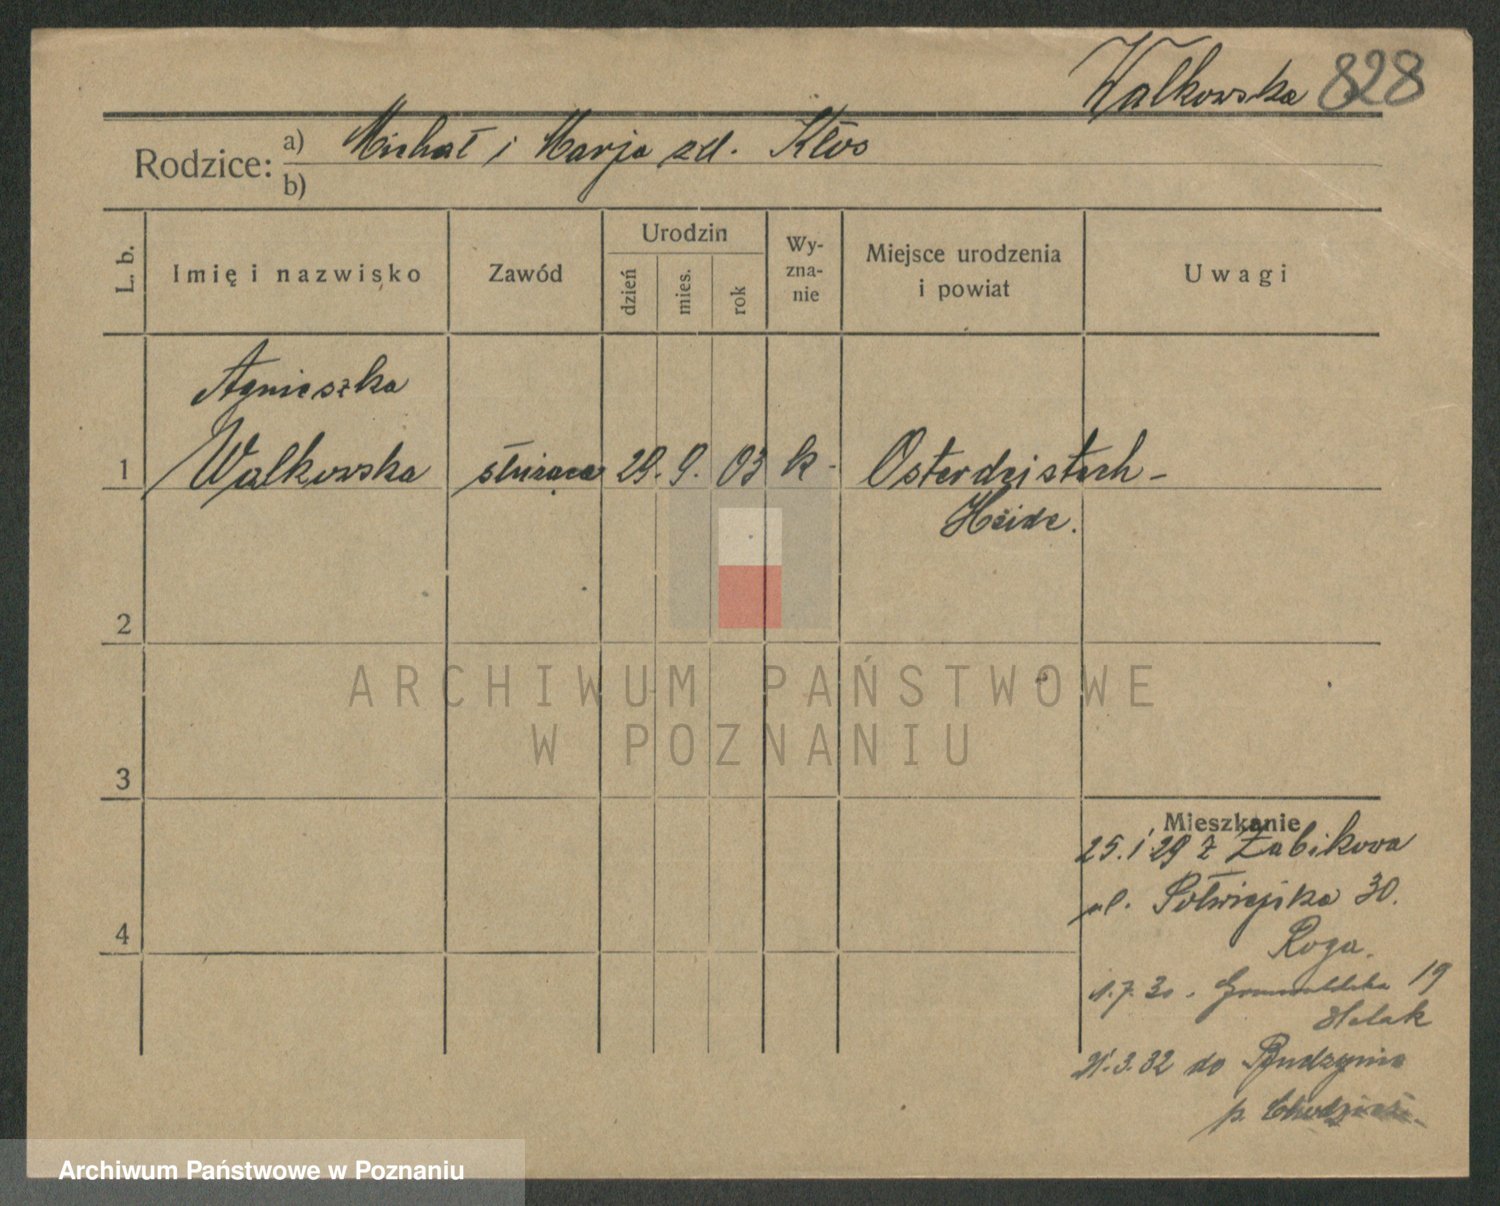 Walkowska 828
Rodzice: a) Michał i Marja zd. Kłos
b)
L. b.
Imię i nazwisko
Zawód
Urodzin
dzień
mies.
rok
Wy-
zna-
nie
Miejsce urodzenia
i powiat
Uwagi
Agnieszka
1 Walkowska służąca 29. 9. 03 k- Osterdzistech-
Heide.
2
3
4
Mieszkanie
25.1 29 z Żabikowa
ul. Półwiejska 30.
Roga.
1.7.30. Grunwaldzka 19
Halak
21.3.32 do Budzynia
p. Chodzież.
ARCHIWUM PAŃSTWOWE
W POZNANIU
Archiwum Państwowe w Poznaniu